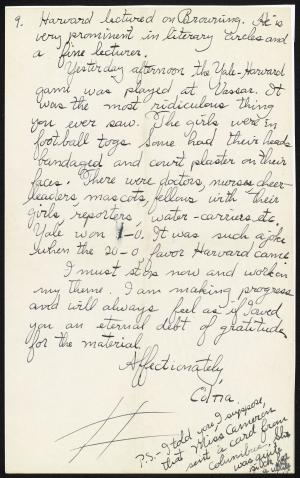 9. Harvard lectured on Browning. He is
very prominent in literary circles and
a fine lecturer.
Yesterday afternoon the Yale-Harvard
game was played at Vassar. It
was the most ridiculous thing
you ever saw. The girls were in
football togs. Some had their heads
bandaged and court plaster on their
faces. There were doctors, nurses, cheer-
leaders, mascots, fellows with their
girls, reporters, water-carriers, etc.
Yale won -0. It was such a joke
when the 20-0 favor Harvard came.
I must stop now and work on
my theme. I am making progress
and will always feel as if I owed
you an eternal debt of gratitude
for the material.
Affectionately
P.S.- I told you, I suppose,
that Miss Cameron
sent a card from
Columbia. She
was quite
sick for